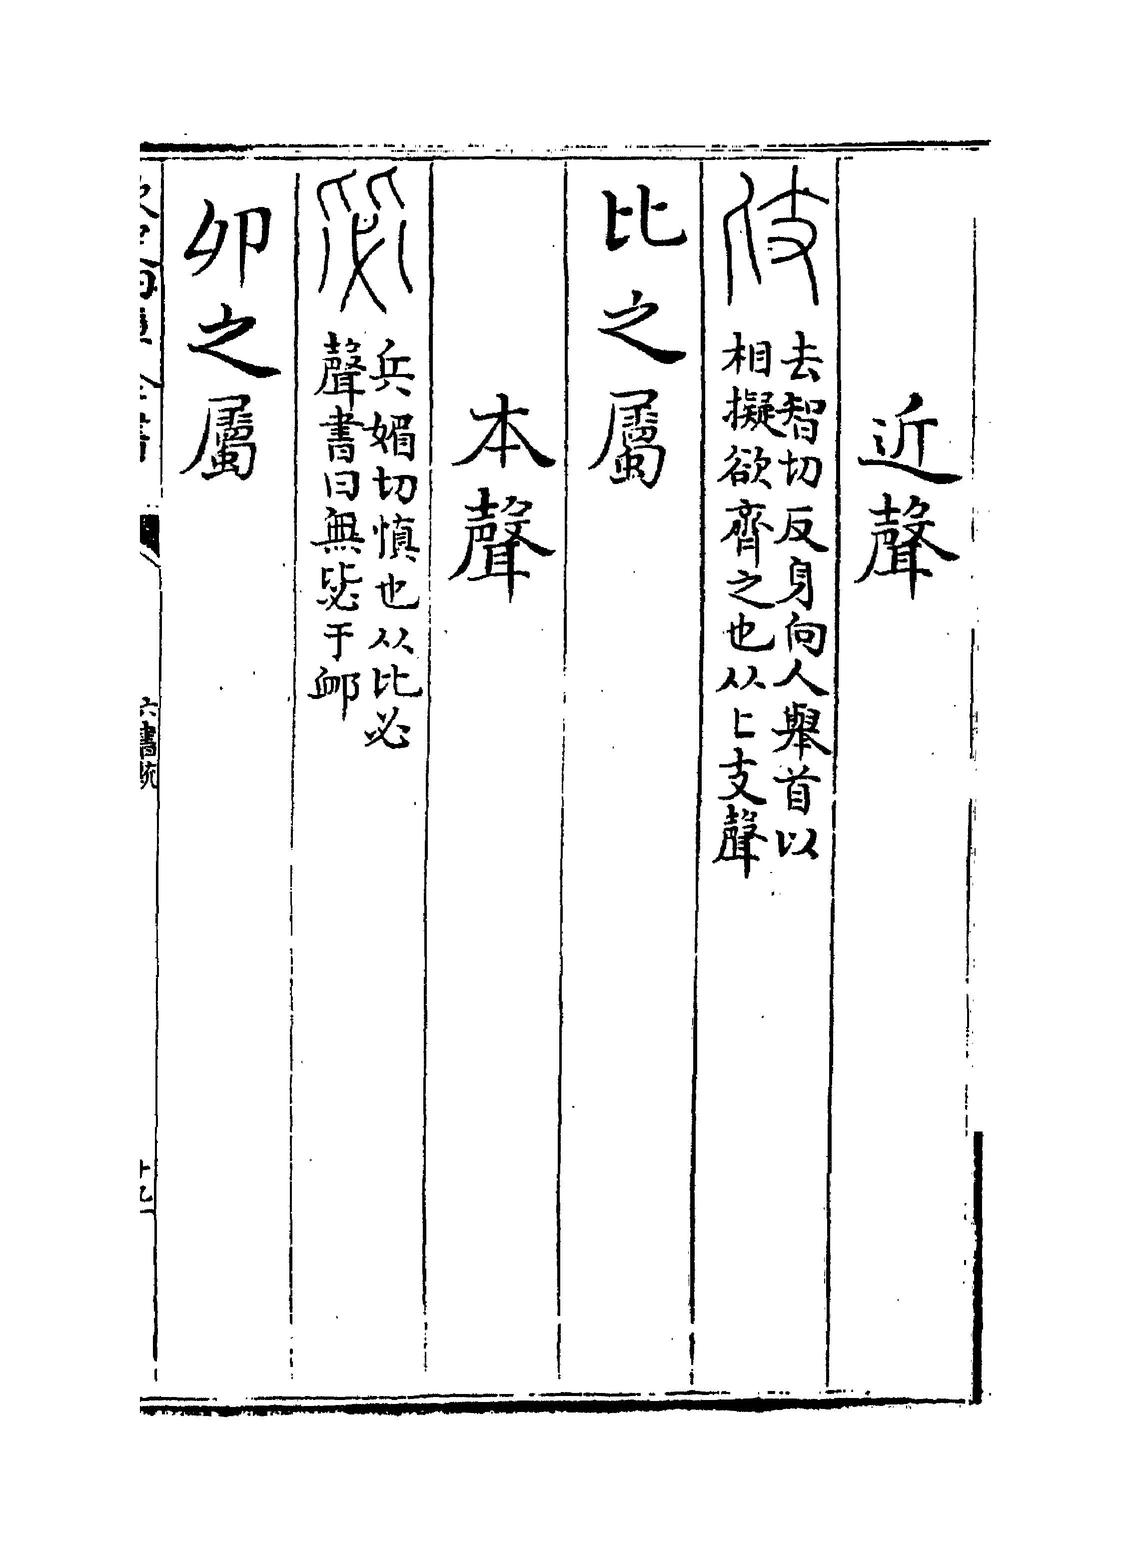 近聲
去智切反身向人舉首以
相擬欲齊之也从匕支聲
比之屬
本聲
毖
兵媚切慎也从比必
聲書曰無毖于卹
卯之屬
六書統